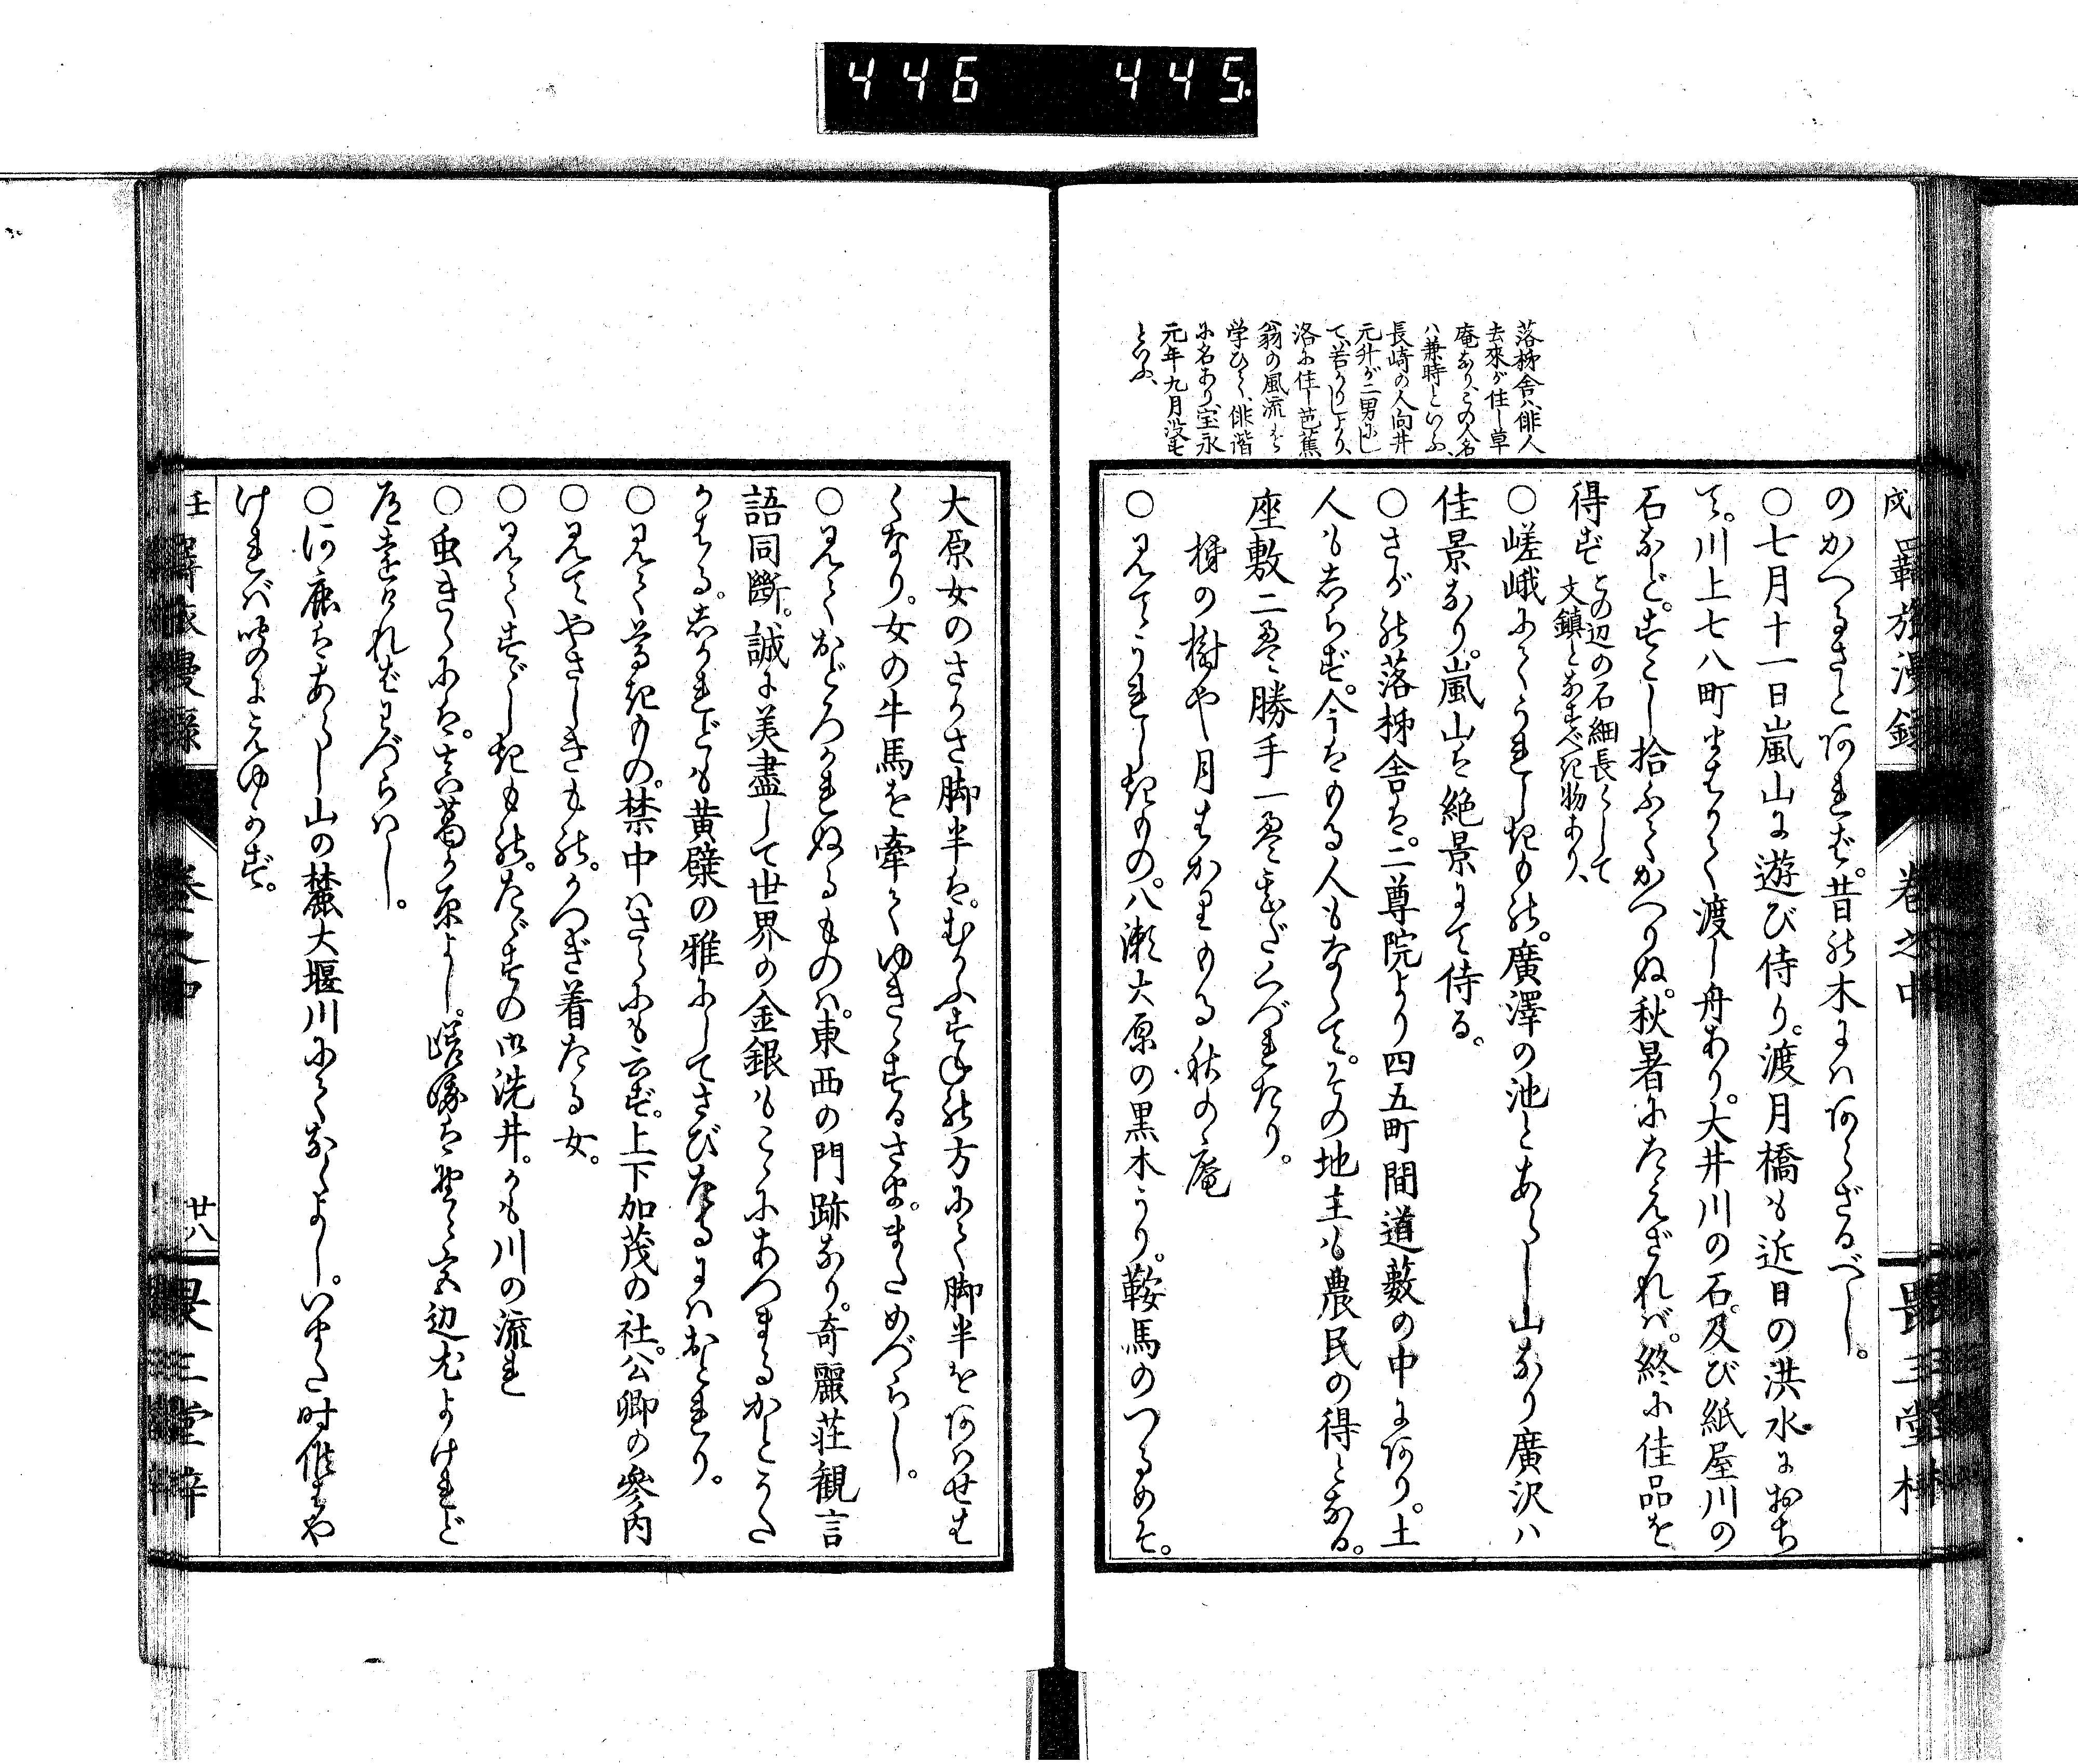 446 445.
落柿舎ハ俳人
去來が住し草
庵なり、この人名
ハ兼時といふ、
長崎の人向井
元升が二男にし
て、若かりしより、
洛に住し芭蕉
翁の風流をら
学ひて、俳諧
に名あり、宝永
元年九月没せ
といふ、
羇旅漫録
巻之中
畏三堂梓
のかへるさとあれば。昔の木にハあらざるべし。
〇七月十一日嵐山に遊び侍り。渡月橋も近日の洪水におち
て。川上七八町にはかく渡し舟あり。大井川の石。及び紙屋川の
石など。すこし拾ふてかへりぬ。秋暑にたえざれバ。終に佳品を
得ず この辺の石細長くして
文鎮となすべき物あり、
〇嵯峨にてうれしきもの。廣澤の池とあらし山なり廣沢ハ
佳景なり。嵐山は絶景にて侍る。
〇さがの落柿舎は。二尊院より四五町間道藪の中にあり。土
人もしらず。今はもる人もなくて。その地主も農民の得となる。
座敷二疊勝手一疊半だくづれたり。
柿の樹や月はかりもる秋の庵
〇見てうれしきもの。八瀬大原の黒木うり。鞍馬のつるめそ。
大原女のさかさ脚半は。むかふすねの方にて脚半をあハせは
くなり。女の牛馬を牽てゆきゝするさま。まためづらし。
〇見ておどろかれぬるものハ。東西の門跡なり。奇麗荘観言
語同斷。誠に美盡して世界の金銀もこゝにあつまるかとうた
かはる。しかれども黄檗の雅にしてさびたるにハおとれり。
〇見て尊きもの。禁中ハさらにも云ず。上下加茂の社。公卿の參内
〇見てやさしきもの。かつぎ着たる女。
〇見てすゞしきもの。たゞすの御洗井。かも川の流れ
〇虫きくには。真葛が原よし。嵯峨は野々宮辺尤よけれど
道遠けれバわづらハし。
〇河鹿はあらし山の麓大堰川にてなくよし。いまた时催はや
けれバ哢のよきこえゆかず。
羇旅漫録
巻之中
廿八
畏三堂梓